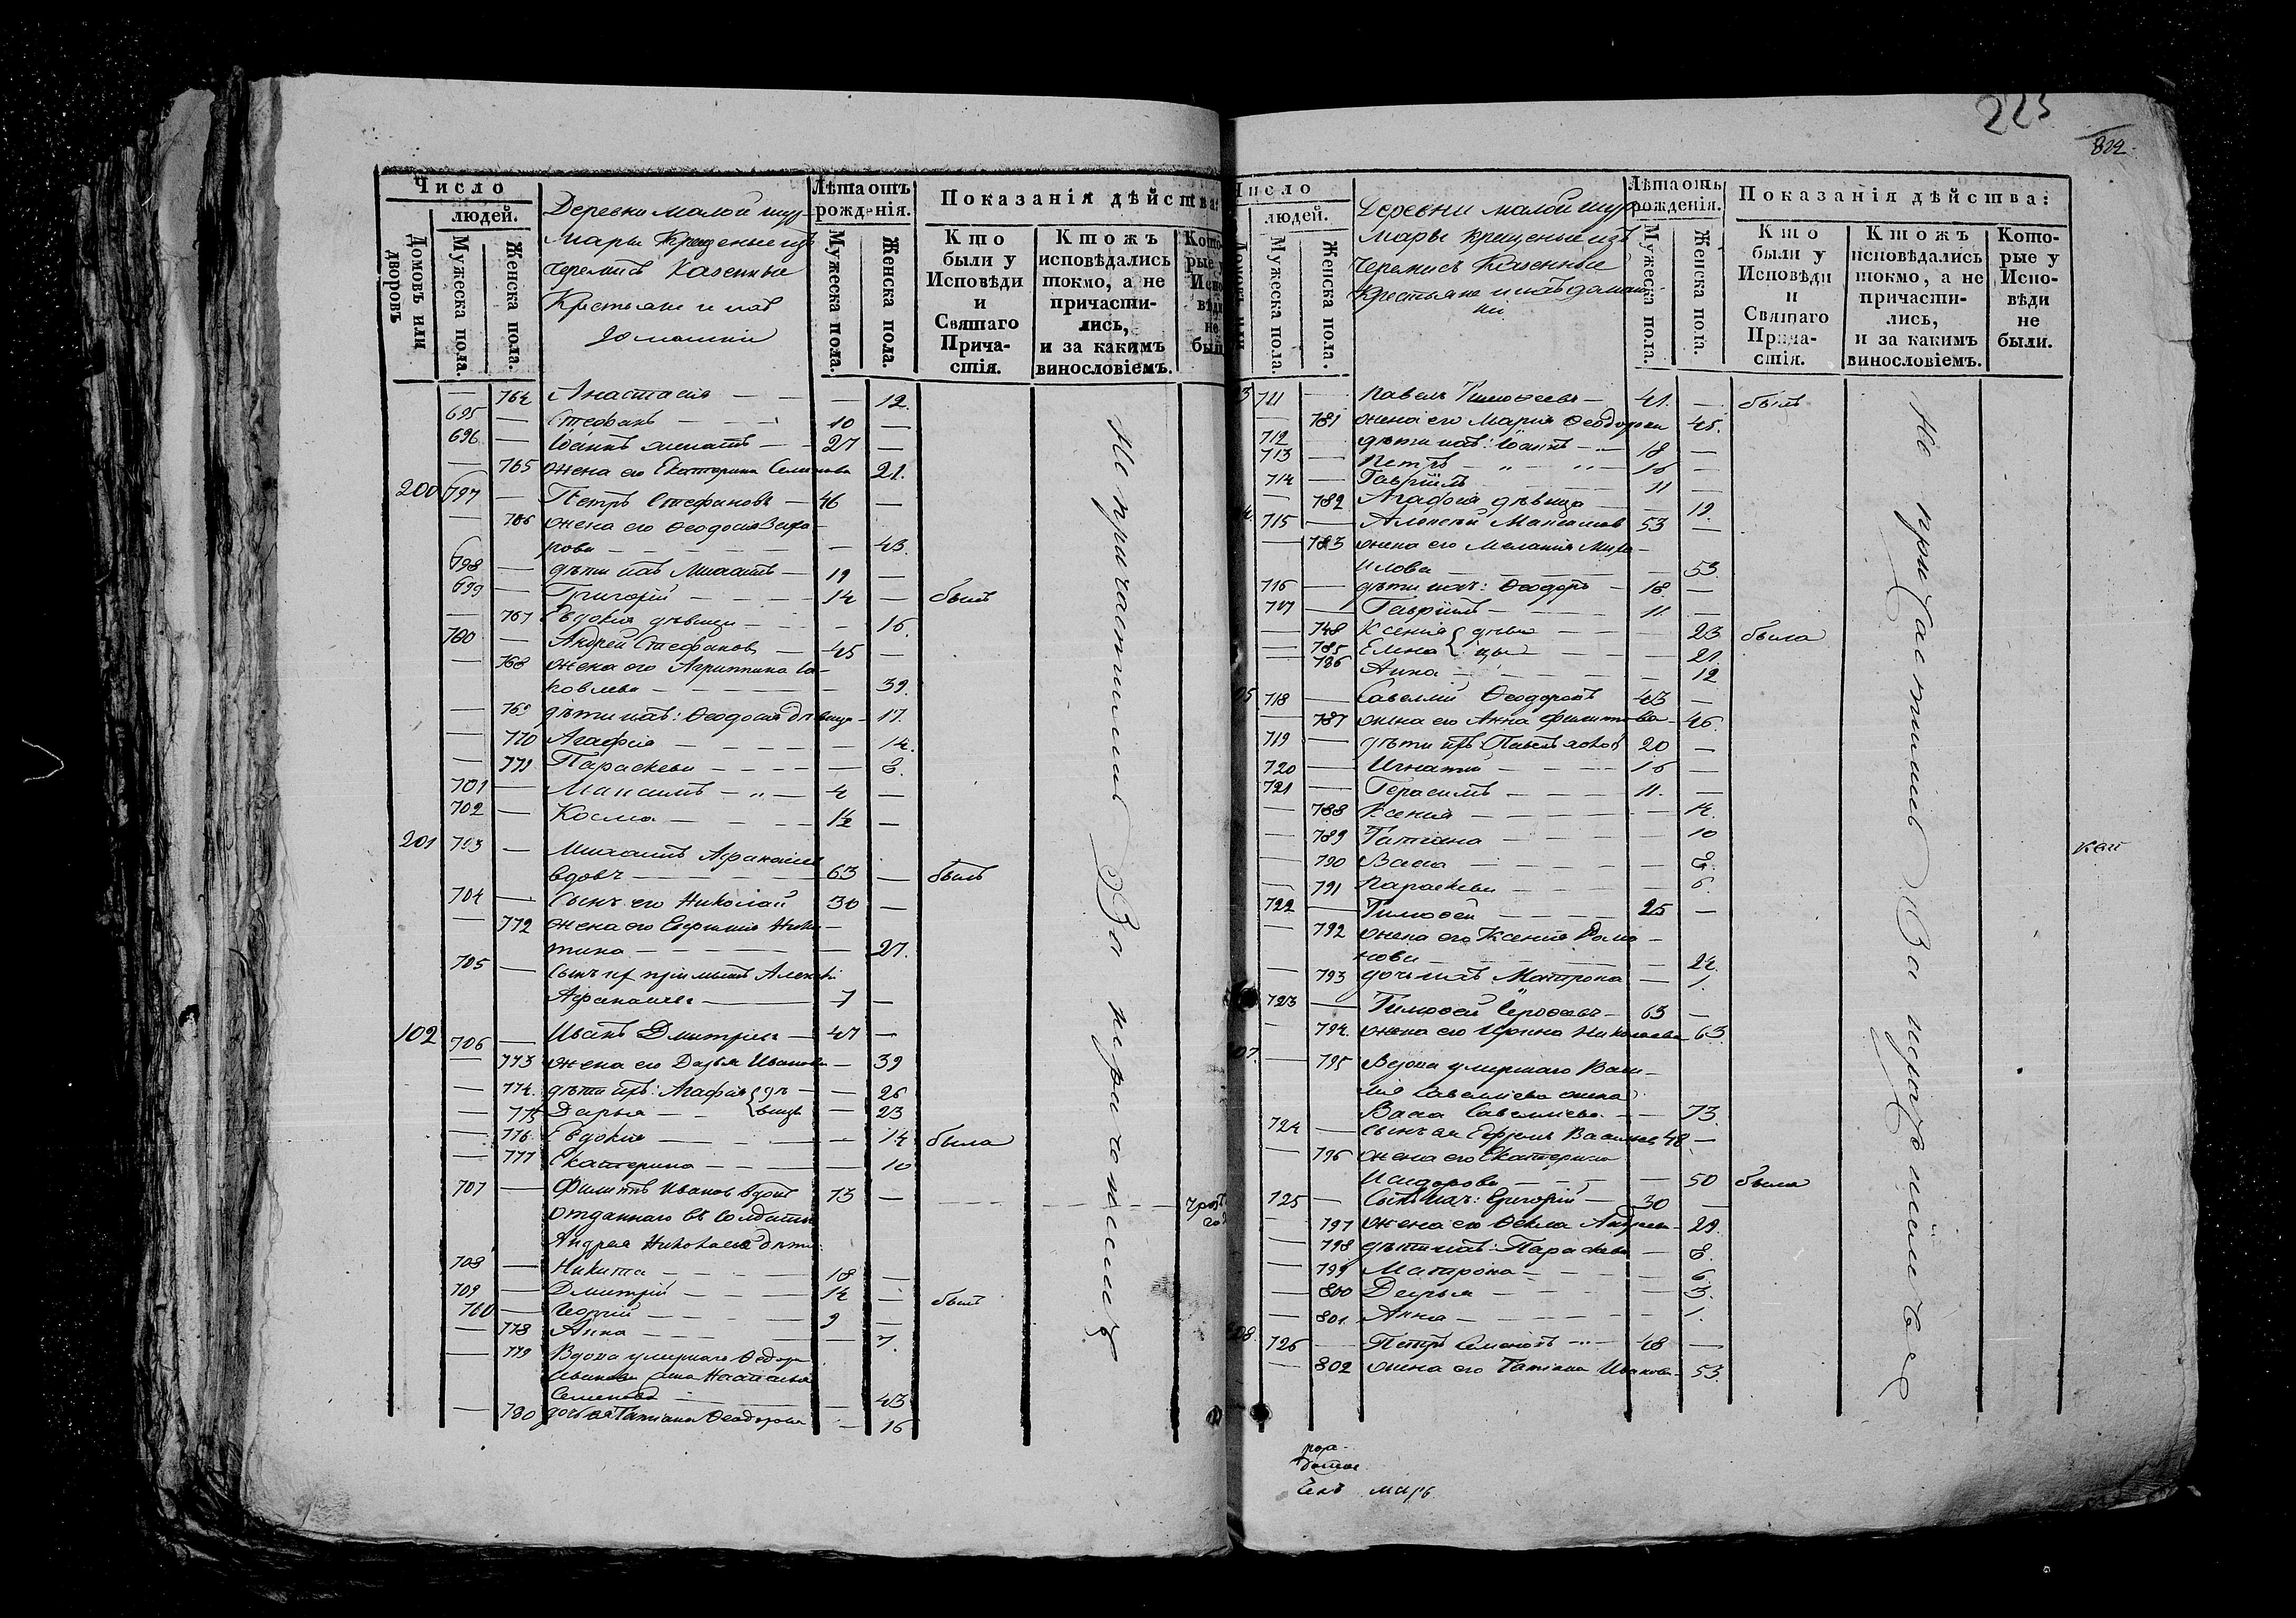 223
822
Число
людей.
Домовъ или дворовъ
Мужеска пола.
Женска пола.
Деревни малой шур-
мары Крещеные изъ
черемисъ Казенные
Крестьяне и ихъ
домашніи
Лѣта отъ рожденія.
Мужеска пола.
Женска пола.
Показанія дѣйства:
Кто были у Исповѣди и Святаго Прича-стія.
Ктожъ исповѣдались токмо, а не причасти-лись, и за какимъ винословіемъ.
764 Анастасія — 12.
695 — Стефанъ — 10 —
696 — Іоаннъ — 27 —
765 жена его Екатерина — 21.
200 797 — Петръ Стефановъ — 46 —
766 жена его Ѳеодосія Заха-
рова — 43.
798 — дѣти ихъ Михаилъ — 19 —
699 — Григорій — 14 — былъ
767 Евдокія дѣвица — 16.
700 — Андрей Стефановъ — 45 —
768 жена его Агриппина Іа-
ковлева — 39.
769 дѣти ихъ: Ѳеодосія дѣвица — 17.
770 Агафія — 14.
771 Параскева — 8.
701 — Максимъ — 4 —
702 — Косма — 1½ —
201 703 — Михаилъ Афанасіев
вдовъ — 63 — былъ
704 — Сынъ его Николай 30 —
772 жена его Евфимія Ники-
тина — 27.
705 — Сынъ пріимышъ Алексѣй
Афанасіевъ — 7 —
102 706 — Иванъ Дмитріевъ — 47 —
773 жена его Дарья Иванова — 39
774. дѣти ихъ: Агафія дѣ- — 26
775 Дарья — вицы — 23
776. Евдокія — 14 была
777 Екатерина — 10
707 — Филиппъ Ивановъ вдовъ 73 —
отданнаго въ солдаты
Андрея Николаева дѣти:
708 — Никита — 18 —
709 — Дмитрій — 14 — былъ
760 — Георгій — 9 —
778 Анна — 7.
779 Вдова умершаго Ѳедора
Иванова жена Настасья
Семенова — 43
780 дочь ея Татіана Ѳеодорова — 16
Не причастились За нерачениемъ
Число
людей.
Мужеска пола.
Женска пола.
Деревни малой шур-
мары крещеные изъ
черемисъ Казенные
Крестьяне и ихъ домаш-
ніи
Лѣта отъ рожденія.
Мужеска пола.
Женска пола.
Показанія дѣйства:
Кто были у Исповѣди и Святаго Прича-стія.
Ктожъ исповѣдались токмо, а не причасти-лись, и за какимъ винословіемъ.
Кото-рые у Испо-вѣди не были.
711 — Павелъ Тимоѳеевъ — 41. — былъ
781 жена его Марія Ѳеодорова 45.
712 дѣти ихъ: Іоаннъ — 18 —
713 — Петръ — 16 —
714 — Гавріилъ — 11 —
782 Агафія дѣвица — 19.
715 — Алексѣй Максимов 53 —
783 жена его Меланія Миха-
илова — 53.
716 — дѣти ихъ: Ѳеодоръ — 18. —
717 — Гавріилъ — 11 —
748 Ксенія дѣви- — 23 была
785 Елена цы — 21.
786 Анна — 12
05 718 — Савелій Ѳеодоровъ 43 —
787 жена его Анна Филиппова — 46.
719 — дѣти ихъ: Павелъ 20 —
720 — Игнатій — 16 —
721 — Герасимъ — 11. —
788 Ксенія — 14.
789 Татіана — 10
790 Васса — 8.
791 Параскева — 6.
722 — Тимоѳей — 25 —
792 жена его Ксенія Рома-
нова — 24.
793 дочь ихъ Матрона — 1.
723 — Тимоѳей — 63 —
794. жена его Ирина Николаева 63.
07. 795 Вдова умершаго Васи-
лія Савеліева жена
Васса Савеліева — 73.
724 — сынъ ея Ефремъ Васильев 48 —
796 жена его Екатерина
Исидорова — 50 была
725 — Сынъ ихъ: Григорій — 30 —
797 жена его Ѳекла Андреева — 29.
798 дѣти ихъ: Параскева — 8.
799 Матрона — 6.
800 Дарья — 3.
801. Анна — 1.
08. 726 — Петръ Семеновъ — 48 —
802 жена его Татіана Иванова — 53.
Не причастились За нерачениемъ